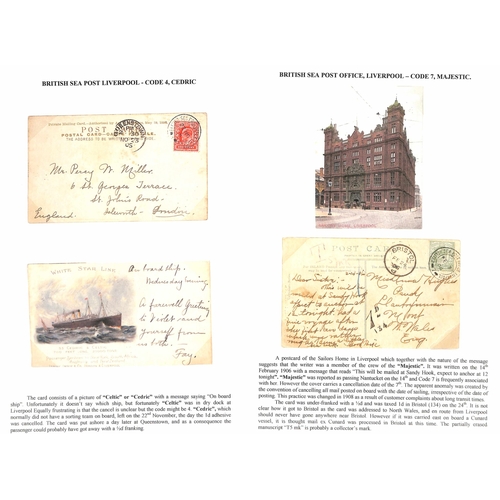 BRITISH SEA POST LIVERPOOL – CODE 4, CEDRIC
POST
POSTAL CARD
THE ADDRESS TO BE
QUEENSTOWN
NO 23
05
Mr. Percy W. Miller.
6 St. Georges Terrace.
St. John's Road.
Isleworth – London.
England.
WHITE STAR LINE
On board ship.
Wednesday evening
A farewell greeting
to Violet and
yourself from
us both
Fay.
The card consists of a picture of "Celtic" or "Cedric" with a message saying "On board
ship". Unfortunately it doesn't say which ship, but fortunately "Celtic" was in dry dock at
Liverpool Equally frustrating is that the cancel is unclear but the code might be 4. "Cedric", which
normally did not have a sorting team on board, left on the 22nd November, the day the 1d adhesive
was cancelled. The card was put ashore a day later at Queenstown, and as a consequence the
passenger could probably have got away with a ½d franking.
BRITISH SEA POST OFFICE, LIVERPOOL – CODE 7, MAJESTIC.
POST CARD
BRISTOL
A postcard of the Sailors Home in Liverpool which together with the nature of the message
suggests that the writer was a member of the crew of the "Majestic". It was written on the 14th
February 1906 with a message that reads "This will be mailed at Sandy Hook, expect to anchor at 12
tonight". "Majestic" was reported as passing Nantucket on the 14th and Code 7 is frequently associated
with her. However the cover carries a cancellation date of the 7th. The apparent anomaly was created by
the convention of cancelling all mail posted on board with the date of sailing, irrespective of the date of
posting. This practice was changed in 1908 as a result of customer complaints about long transit times.
The card was under-franked with a ½d and was taxed 1d in Bristol (134) on the 24th. It is not
clear how it got to Bristol as the card was addressed to North Wales, and en route from Liverpool
should never have gone anywhere near Bristol However if it was carried east on board a Cunard
vessel, it is thought mail ex Cunard was processed in Bristol at this time. The partially erased
manuscript "T5 mk" is probably a collector's mark.